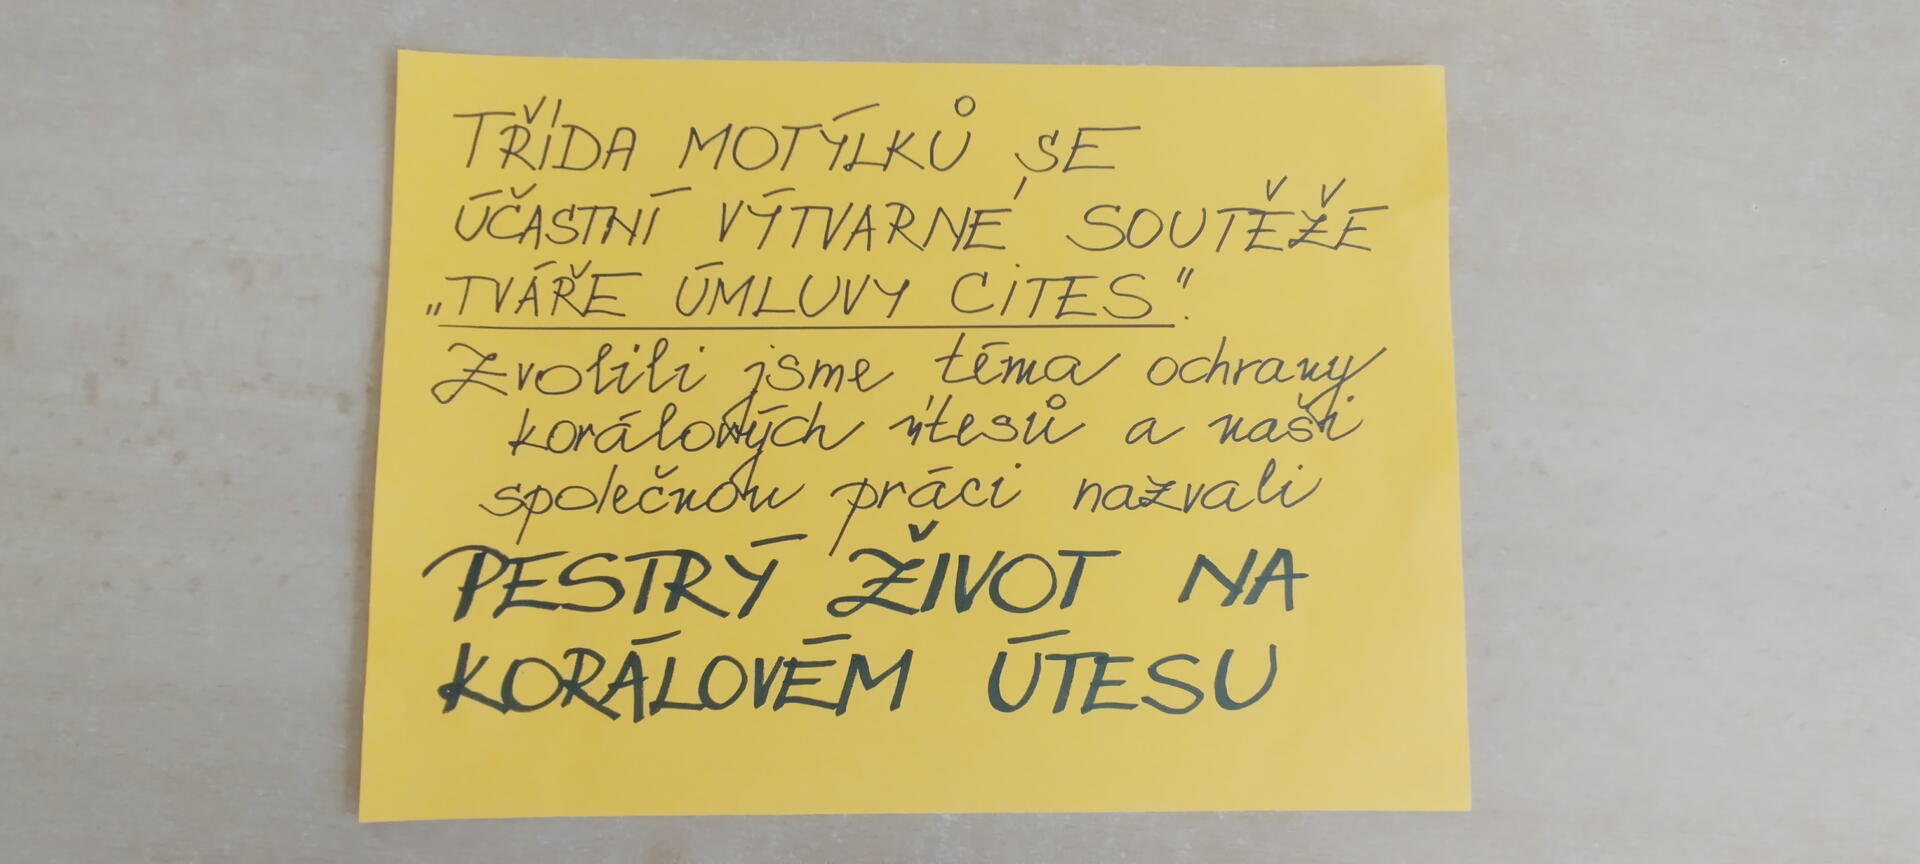 TŘÍDA MOTÝLKŮ SE
ÚČASTNÍ VÝTVARNÉ SOUTĚŽE
„TVÁŘE ÚMLUVY CITES".
Zvolili jsme téma ochrany
korálových útesů a naši
společnou práci nazvali
PESTRÝ ŽIVOT NA
KORÁLOVÉM ÚTESU